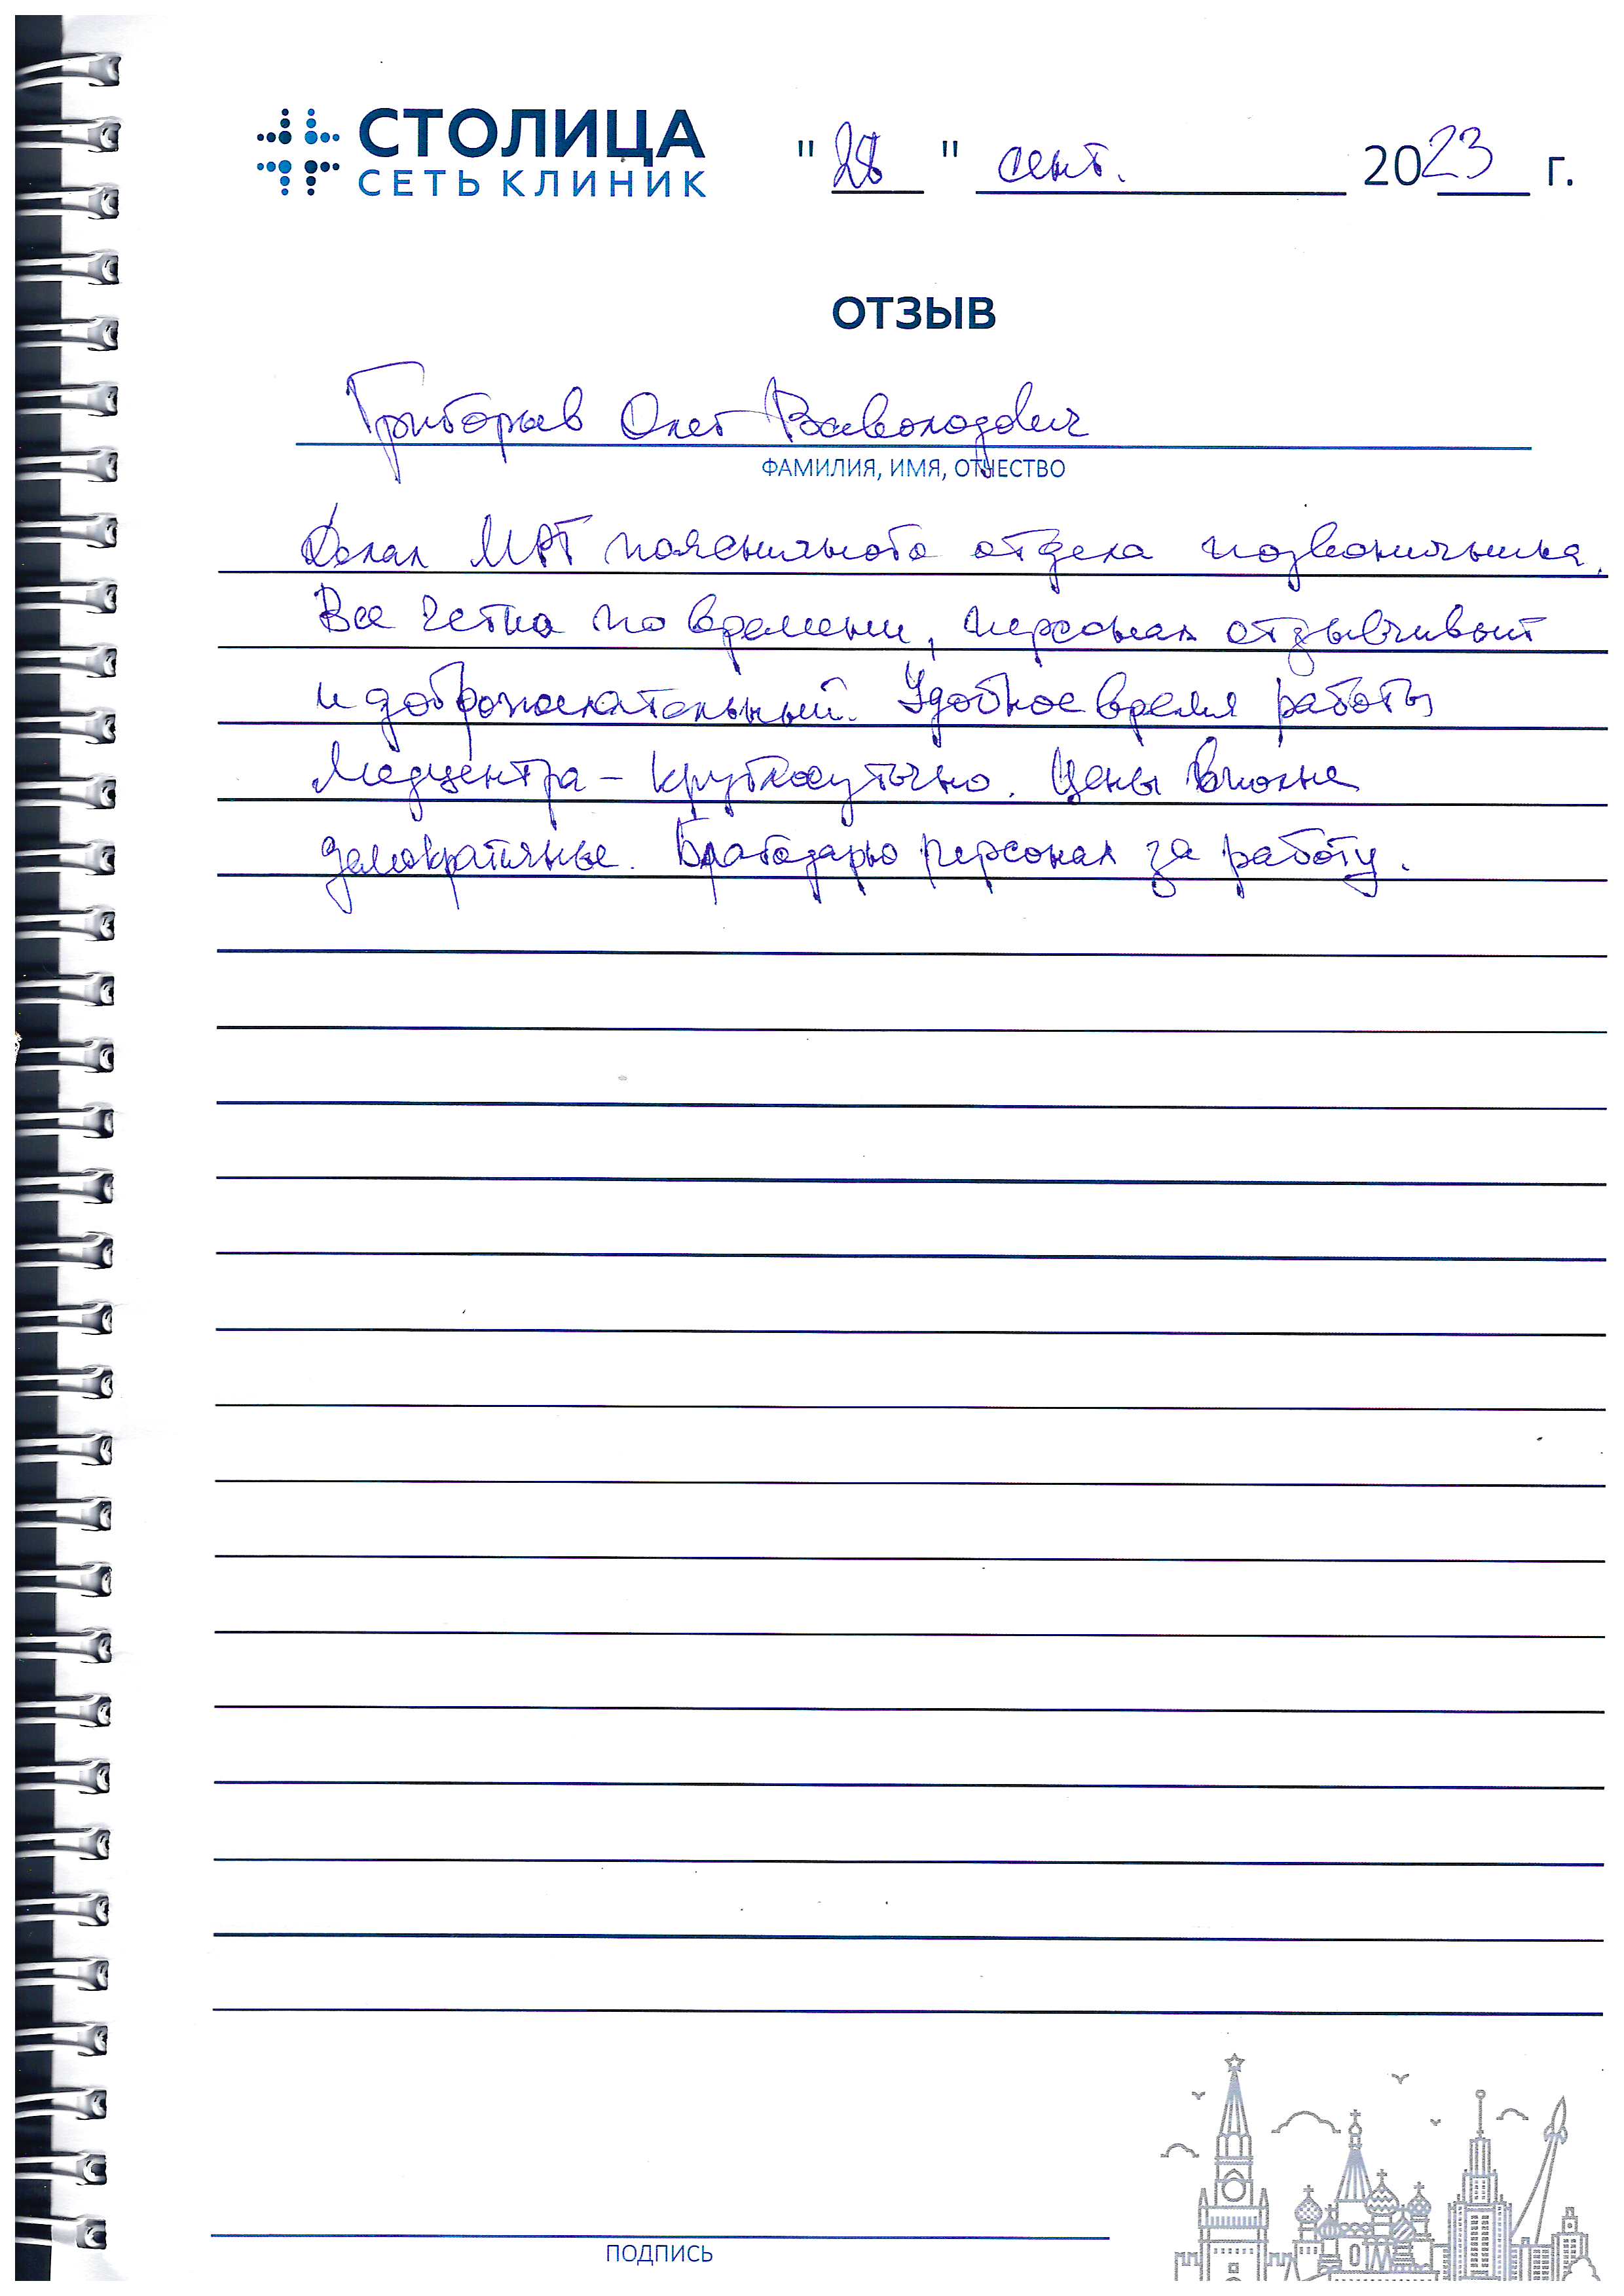 СТОЛИЦА
СЕТЬ КЛИНИК
" 28 " сент. 2023 г.
ОТЗЫВ
Григорьев Олег Всеволодович
ФАМИЛИЯ, ИМЯ, ОТЧЕСТВО
Делал МРТ поясничного отдела позвоничника.
Все четко по времени, персонал отзывчивый
и доброжелательный. Удобное время работы
Медцентра – круглосуточно. Цены вполне
демократичные. Благодарю персонал за работу.
ПОДПИСЬ